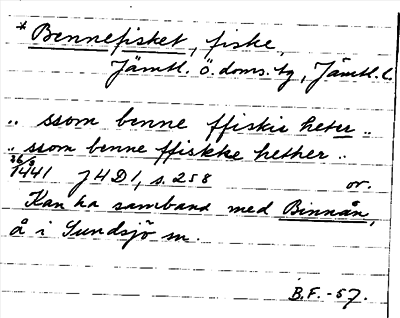 * Bennefisket, fiske,
Jämtl. ö. doms. tg, Jämtl. l.
.. ssom benne ffiskie heter ..
.. ssom benne ffiskke hether ..
26/9 1441 J4D1, s. 258 or.
Kan ha samband med Binnån,
å i Sundsjö sn.
B.F. -57.